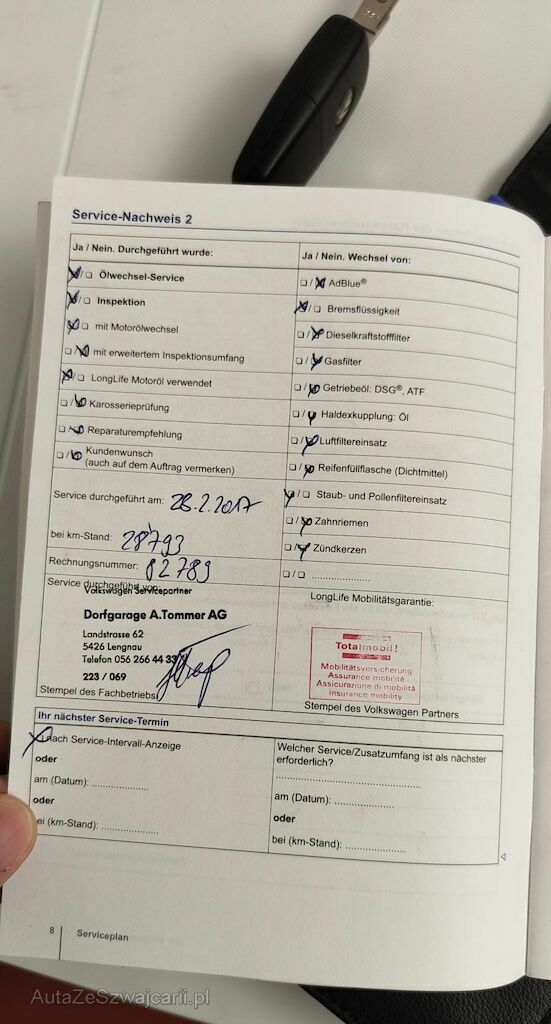 Service-Nachweis 2
Ja / Nein. Durchgeführt wurde:
☒/☐ Ölwechsel-Service
☒/☐ Inspektion
☒/☐ mit Motorölwechsel
☐/☒ mit erweitertem Inspektionsumfang
☒/☐ LongLife Motoröl verwendet
☐/☒ Karosserieprüfung
☐/☒ Reparaturempfehlung
☐/☒ Kundenwunsch
(auch auf dem Auftrag vermerken)
Ja / Nein. Wechsel von:
☐/☒ AdBlue®
☒/☐ Bremsflüssigkeit
☐/☒ Dieselkraftstofffilter
☐/☒ Gasfilter
☐/☒ Getriebeöl: DSG®, ATF
☐/☒ Haldexkupplung: Öl
☐/☒ Luftfiltereinsatz
☐/☒ Reifenfüllflasche (Dichtmittel)
☒/☐ Staub- und Pollenfiltereinsatz
☐/☒ Zahnriemen
☐/☒ Zündkerzen
☐/☐ ....................
Service durchgeführt am: 28.2.2017
bei km-Stand: 28'793
Rechnungsnummer: 82789
Service durchgeführt von:
Volkswagen Servicepartner
Dorfgarage A.Tommer AG
Landstrasse 62
5426 Lengnau
Telefon 056 266 44 33
223 / 069
Stempel des Fachbetriebs
LongLife Mobilitätsgarantie:
Totalmobil!
Mobilitätsversicherung
Assurance mobilité
Assicurazione di mobilità
Insurance mobility
Stempel des Volkswagen Partners
Ihr nächster Service-Termin
☒ nach Service-Intervall-Anzeige
oder
am (Datum): ....................
oder
bei (km-Stand): ....................
Welcher Service/Zusatzumfang ist als nächster
erforderlich?
..................................................
am (Datum): ....................
oder
bei (km-Stand): ....................
8 Serviceplan
AutaZeSzwajcarii.pl